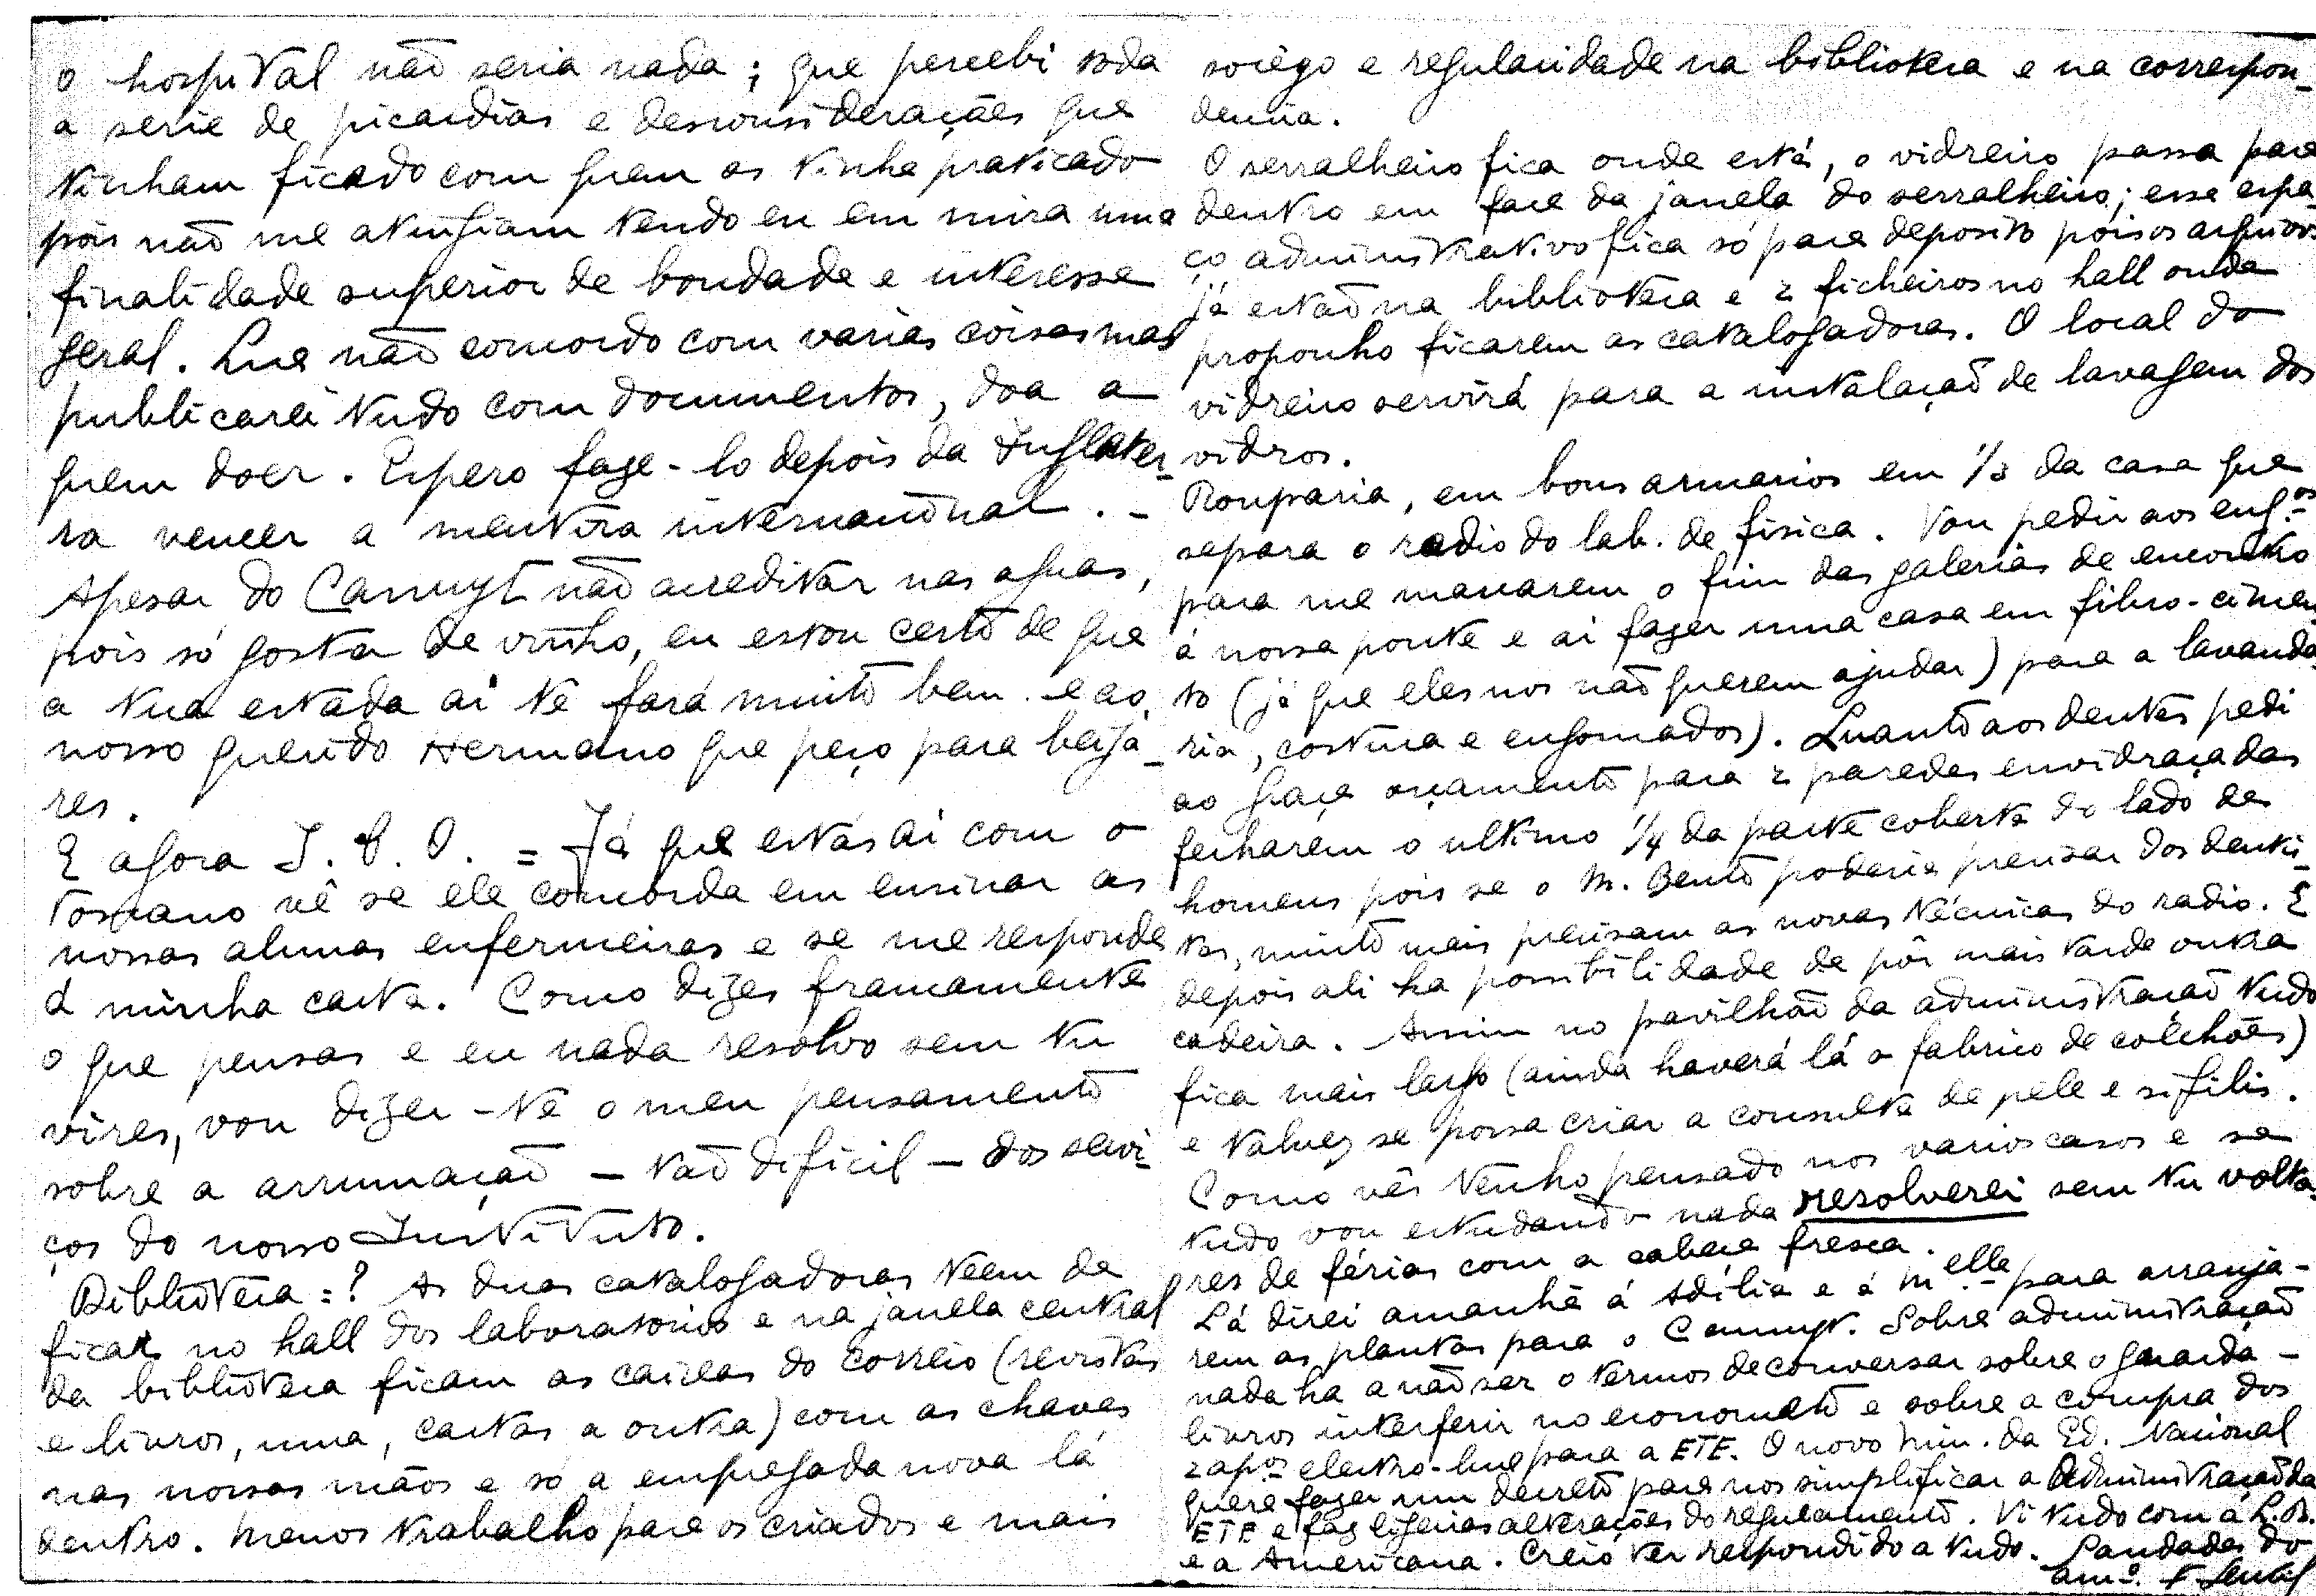 o hospital não seria nada; que percebi toda
a serie de picardias e desconsiderações que
tinham ficado com quem as tinha praticado
pois não me atingiam tendo eu em mira uma
finalidade superior de bondade e interesse
geral. Que não concordo com varias coisas mas
publicarei tudo com documentos, doa a
quem doer. Espero faze-lo depois da Inglater-
ra vencer a mentira internacional. –
Apesar do Canuyt não acreditar nas aguas,
pois só gosta de vinho, eu estou certo de que
a tua estada ai te fará muito bem e ao
nosso querido Hermano que peço para beija-
res.
E agora I. P. O. = Já que estás ai com o
Toscano vê se ele concorda em ensinar as
nossas alunas enfermeiras e se me responde
á minha carta. Como dizes francamente
o que pensas e eu nada resolvo sem tu
vires, vou dizer-te o meu pensamento
sobre a arrumação – tão dificil – dos servi-
ços do nosso Instituto.
Biblioteca = ? As duas catalogadoras teem de
ficar no hall dos laboratorios e na janela central
da biblioteca ficam as caixas do correio (revistas
e livros, uma, cartas a outra) com as chaves
nas nossas mãos e só a empregada nova lá
dentro. Menos trabalho para os criados e mais
socêgo e regularidade na biblioteca e na correspon-
dencia.
O serralheiro fica onde está, o vidreiro passa para
dentro em face da janela do serralheiro; esse espa-
ço administrativo fica só para deposito pois os arquivos
já estão na biblioteca e 2 ficheiros no hall onde
proponho ficarem as catalogadoras. O local do
vidreiro servirá para a instalação de lavagem dos
vidros.
Rouparia, em bons armarios em 1/3 da casa que
separa o radio do lab. de fisica. Vou pedir aos eng.os
para me marcarem o fim das galerias de encontro
á nossa ponte e ai fazer uma casa em fibro-cimen
to (já que eles nos não querem ajudar) para a lavanda
ria, costura e engomados). Quanto aos dentes pedi
ao Graça orçamento para 2 paredes envidraçadas
fecharem o ultimo 1/4 da parte coberta do lado de
homens pois se o M. Bento poderia precisar dos dentis-
tas, muito mais precisam as novas técnicas do radio. E
depois ali ha possibilidade de pôr mais tarde outra
cadeira. Assim no pavilhão da administração tudo
fica mais largo (ainda haverá lá o fabrico de colchões)
e talvez se possa criar a consulta de pele e sifilis.
Como vês tenho pensado nos varios casos e se
tudo vou estudando nada resolverei sem tu volta
res de férias com a cabeça fresca.
Lá direi amanhã á Adilia e á M.elle para arranja-
rem as plantas para o Canuyt. Sobre administração
nada ha a não ser o termos de conversar sobre o guarda-
livros interferir no economato e sobre a compra dos
2 apos electro-lux para a ETE. O novo Min. da Ed. Nacional
quere fazer um decreto para nos simplificar a Administração da
ETE e faz ligeiras alterações do regulamento. Vi tudo com a L. R.
e a Americana. Creio ter respondido a tudo. Saudades do
am.o F Gentil